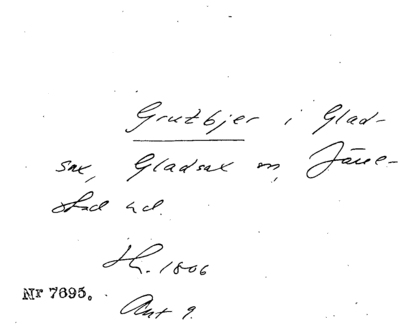 Grutbjer i Glad-
sax, Gladsax sn, Järre-
stad hd.
H. 1806
Nr 7695.
Akt 9.